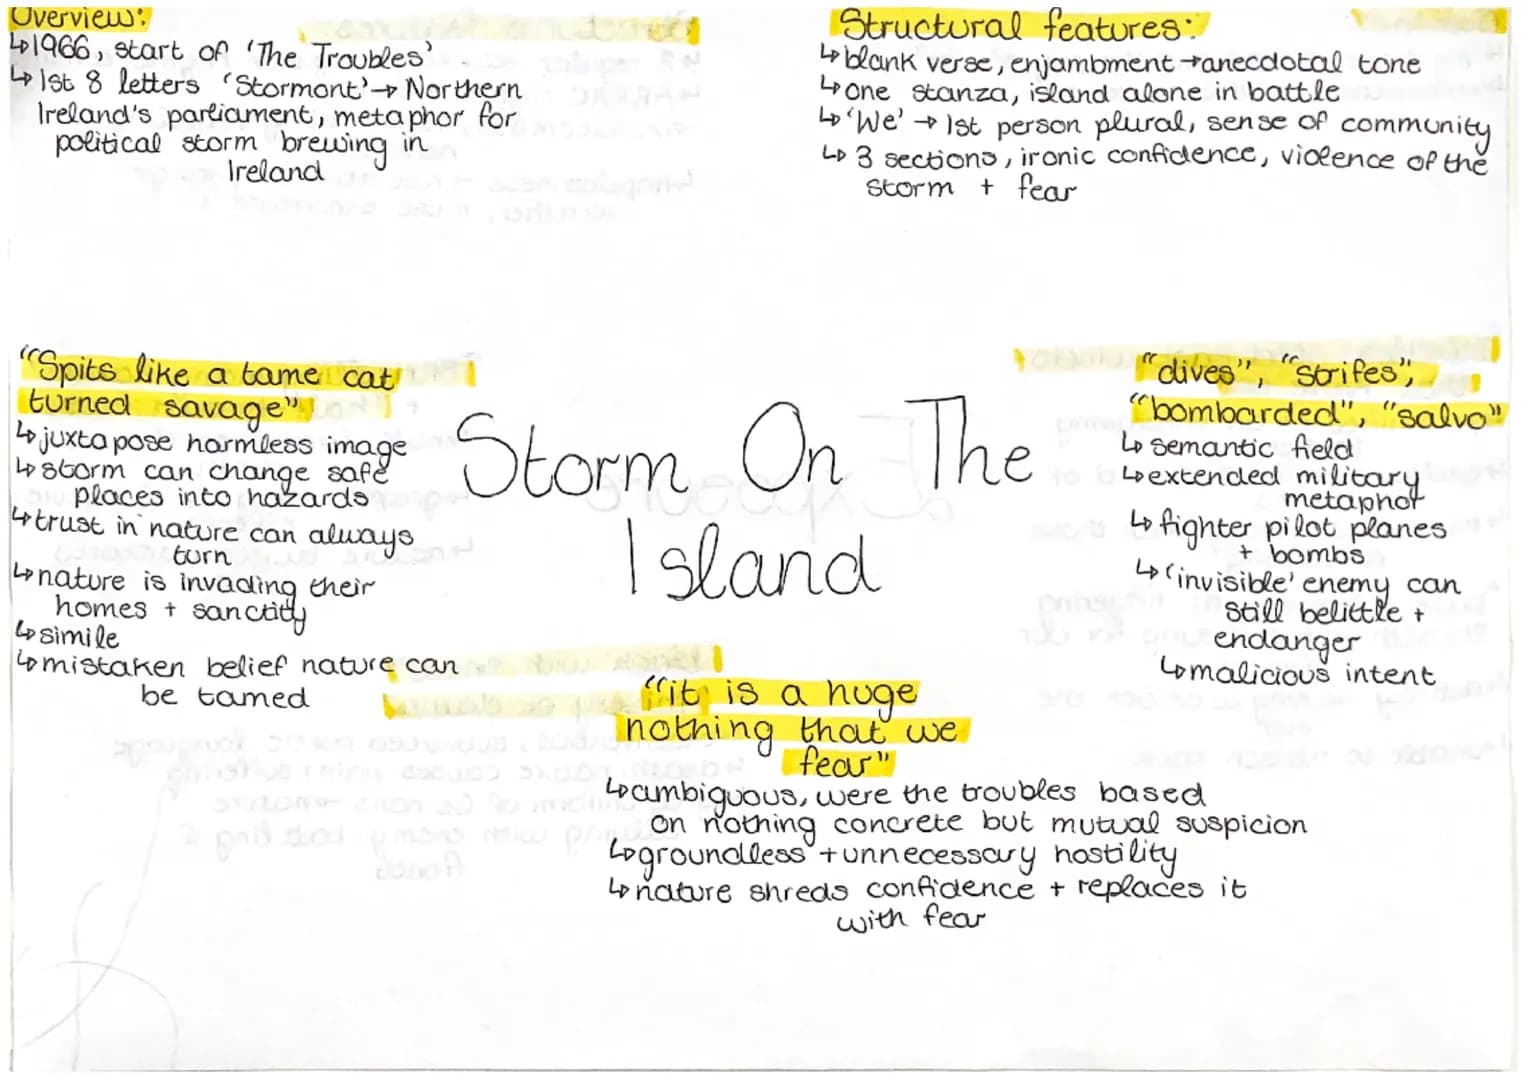 Overview:
↳1966, start of 'The Troubles'
↳1st 8 letters 'Stormont'→ Northern
Ireland's parliament, metaphor for
political storm brewing in
Ireland
Structural features:
↳blank verse, enjambment →anecdotal tone
↳one stanza, island alone in battle
↳'We' → 1st person plural, sense of community
↳ 3 sections, ironic confidence, violence of the
storm + fear
"Spits like a tame cat
turned savage"
↳juxtapose harmless image
↳storm can change safe
places into hazards
↳trust in nature can always
turn
↳nature is invading their
homes + sanctity
↳simile
↳mistaken belief nature can
be tamed
Storm On The
Island
"dives", "strifes",
"bombarded", "salvo"
↳ semantic field
↳extended military
metaphor
↳ fighter pilot planes
+ bombs
↳'invisible' enemy can
still belittle +
endanger
↳malicious intent
"it is a huge
nothing that we
fear"
↳ambiguous, were the troubles based
on nothing concrete but mutual suspicion
↳groundless + unnecessary hostility
↳nature shreds confidence + replaces it
with fear